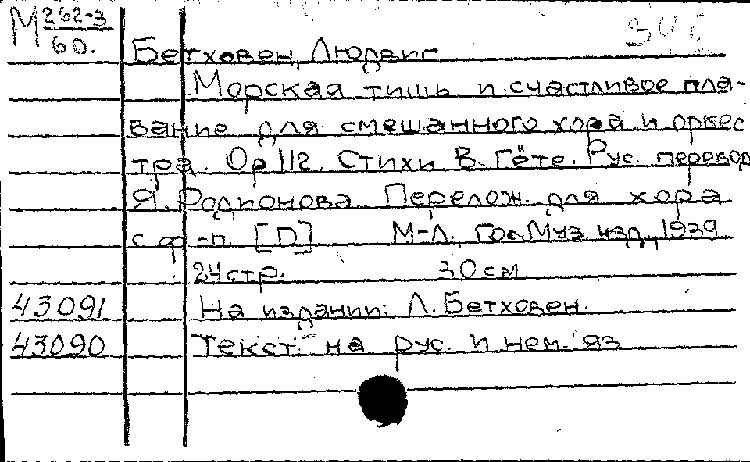 М 262-3
60.
Бетховен, Людвиг
Морская тишь и счастливое пла-
вание для смешанного хора и оркес
тра. Op 112. Стихи В. Гёте. Рус. перевод
Я. Родионова. Перелож. для хора
с ф.-п. [П] М-Л, Гос. Муз. изд., 1939
24 стр. 30 см
43091 На издании: Л. Бетховен.
43090 Текст на рус. и нем. яз